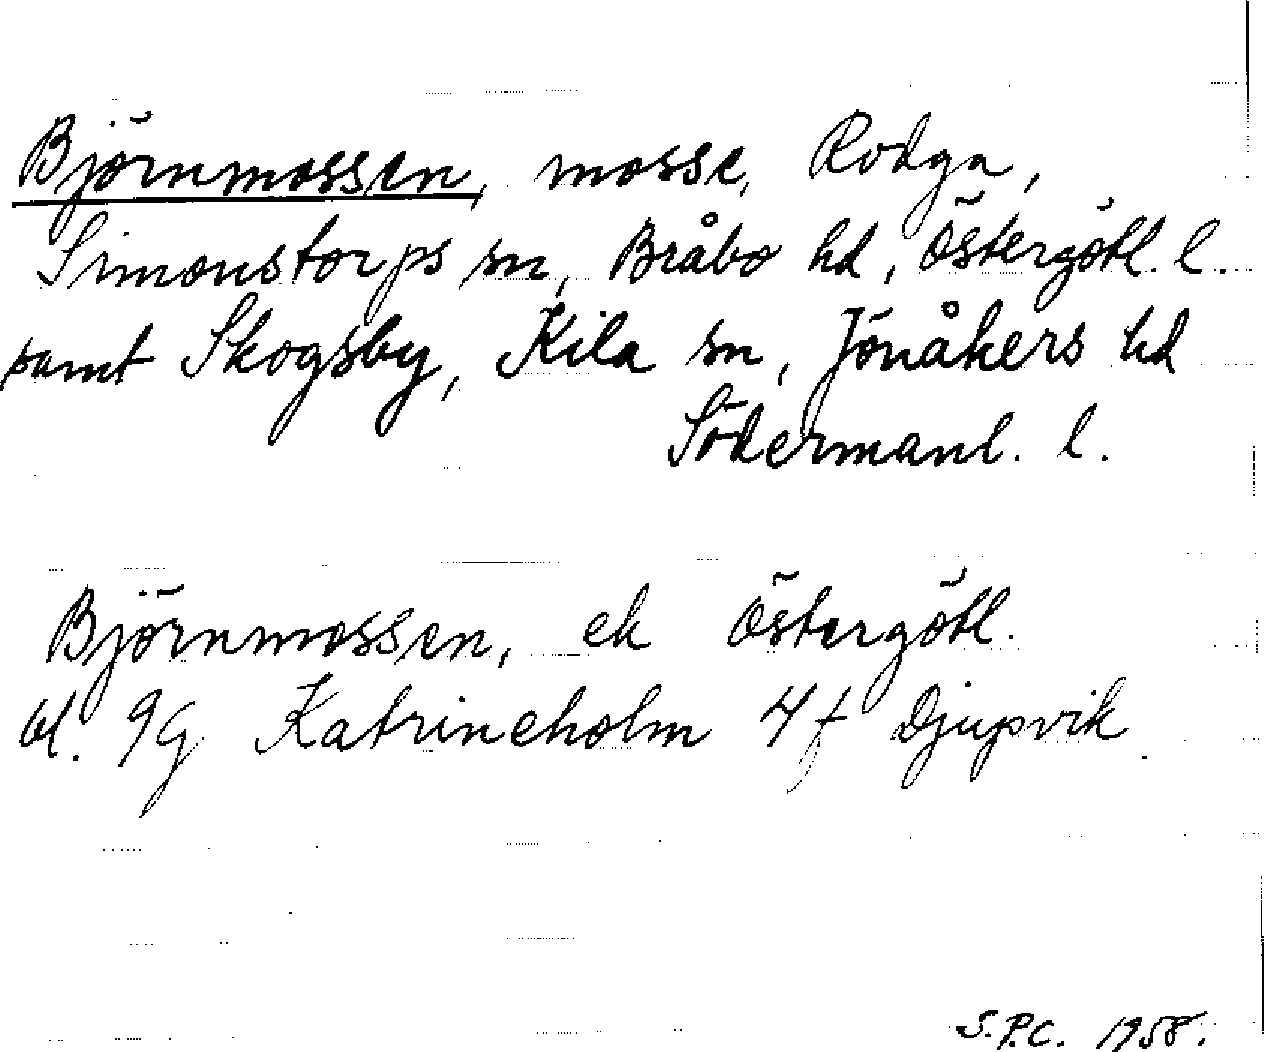 Björnmossen, mosse, Rodga,
Simonstorps sn, Bråbo hd, Östergötl. l.
samt Skogsby, Kila sn, Jönåkers hd
Södermanl. l.
Björnmossen, ek Östergötl.
bl. 9G Katrineholm 4f Djupvik
S.P.C. 1958.